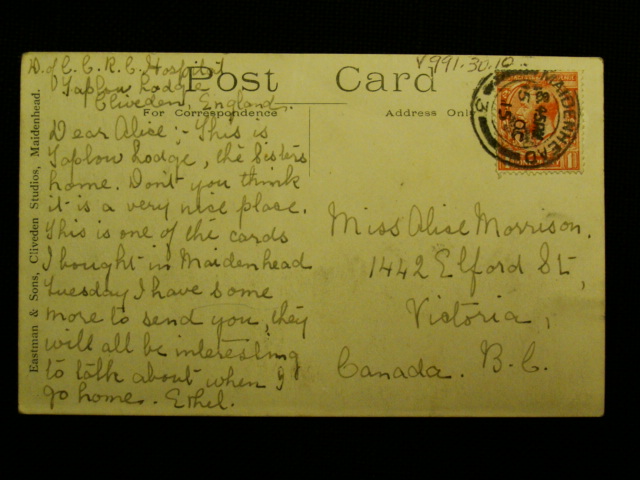 Y991.30.10
D. of C. C. R. C. Hospital
Taplow Lodge
Cliveden, England.
Post Card
For Correspondence
Address Only
Dear Alice;- This is
Taplow Lodge, the Sisters
home. Don't you think
it is a very nice place.
This is one of the cards
I bought in Maidenhead
Tuesday I have some
more to send you, they
will all be interesting
to talk about when I
go home. Ethel.
Miss Alice Morrison.
1442 Elford St,
Victoria,
Canada. B.C.
Eastman & Sons, Cliveden Studios, Maidenhead.
MAIDENHEAD
5 OC
15
3